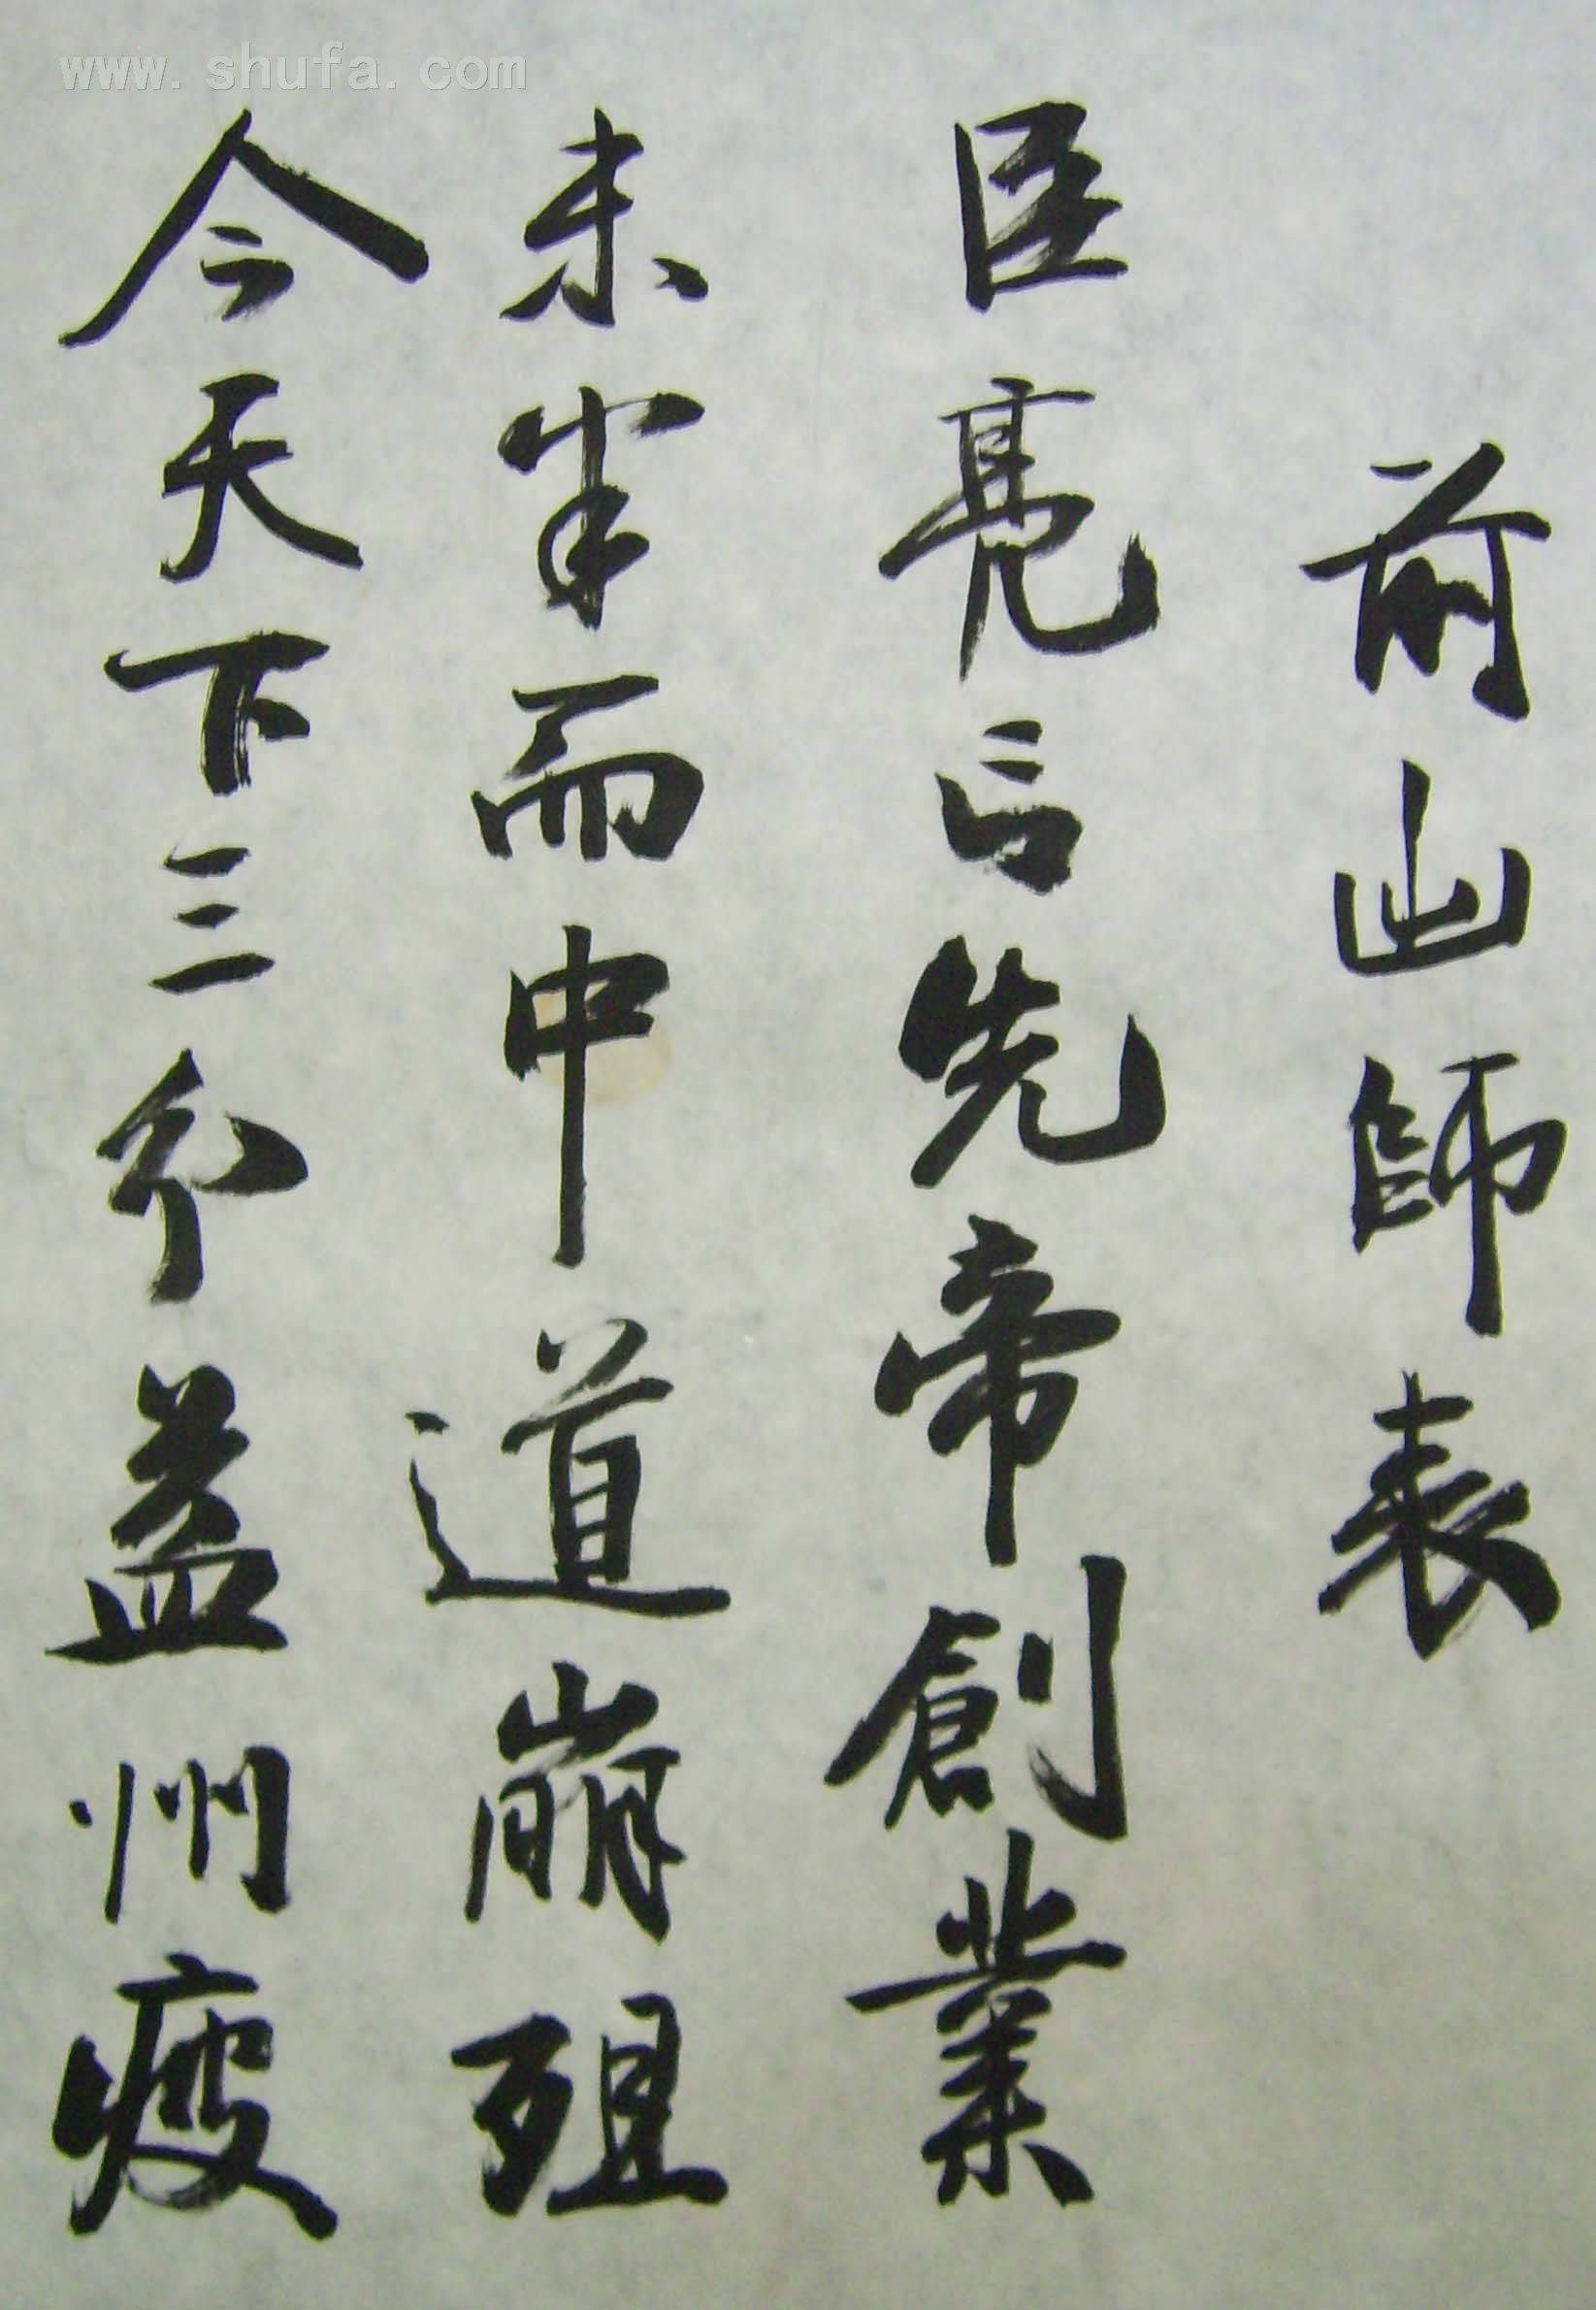 www.shufa.com
前出師表
臣亮言先帝創業
未半而中道崩殂
今天下三分益州疲